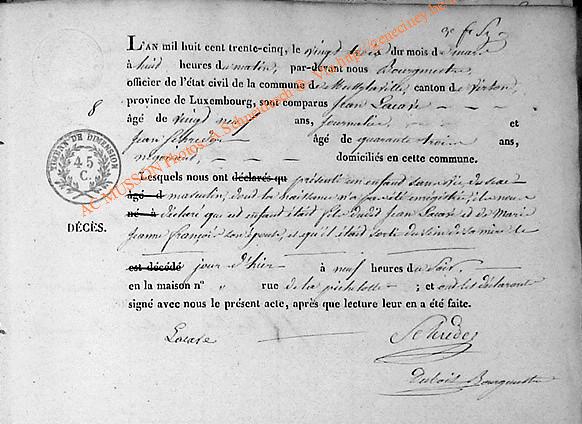 L'AN mil huit cent trente-cinq, le vingt trois du mois de mars
à huit heures du matin, par-devant nous Bourgmestre,
officier de l'état civil de la commune de canton de Virton,
province de Luxembourg, sont comparus Jean Lacave
8
âgé de vingt neuf ans, journalier, et
Jean Schreder âgé de quarante trois ans,
domiciliés en cette commune.
TIMBRE DE DIMENSION
45
C.
Lesquels nous ont déclarés qu présenté un enfant sans vie, du sexe
âgé d masculin, dont la naissance n'a pas été enregistrée, et nous
né à déclaré que cet enfant était fils dudit Jean Lacave et de Marie
DÉCÈS.
Jeanne François son épouse, et qu'il était sorti du sein de sa mère le
est décédé jour d'hier à neuf heures du soir
en la maison n° " rue de la ; et ont les déclarants
signé avec nous le présent acte, après que lecture leur en a été faite.
Lacave Schreder
Dubois Bourgmestre
AC MUSSON Photos A Schmickrath © Via http://geneciney.be